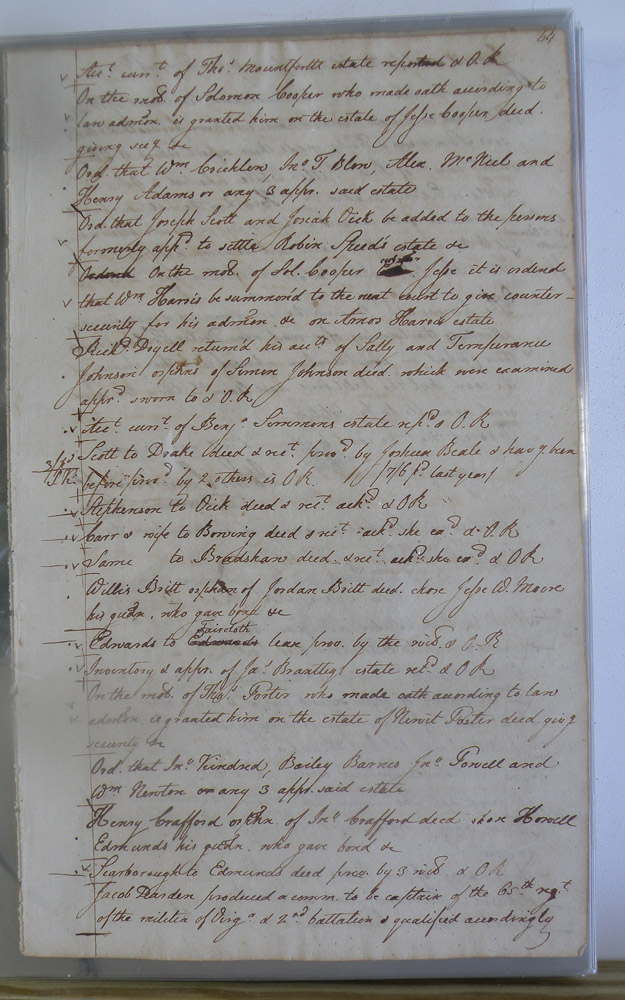 64
Acc.t curr.t of Tho.s Mountfortt estate reported & O.R
On the mo.o of Solomon Cooper who made oath according to
law admõn. is granted him on the estate of Jesse Cooper deed.
giving sec.y &c
Ord. that Wm Cricklow, Jn.o T. Blow, Alex. McNeil and
Henry Adams or any 3 appr. said estate
Ord. that Joseph Scott and Josiah Vick be added to the persons
formerly app.d to settle Robin Sneed's estate &c
On the mo.o of Sol. Cooper Jesse it is ordered
that Wm Harris be summon'd to the next court to give counter-
security for his admõn. &c on Amos Harris estate
Rich.d Doyell return'd his acc.ts of Sally and Temperance
Johnson orphns of Simon Johnson deed. which were examined
appr.d sworn to & O.R
Acc.t curr.t of Benj.a Simmons estate ret.d & O.R
Scott to Drake deed & rec.t prov.d by Joshua Beale & hav.g been
before prov.d by 2 others is O.R. last year
Stephenson to Vick deed & rec.t ack.d & O.R
Carr & wife to Bowing deed & rec.t ack.d she ex.d & O.R
Same to Bradshaw deed & rec.t ack.d she ex.d & O.R
Willis Britt orphan of Jordan Britt deed. chose Jesse W. Moore
his gudn. who gave bond &c
Faircloth
Edwards to Edwards lease prov. by the wits. & O.R
Inventory & appr. of Ja.s Brantley estate ret.d & O.R
On the mo.o of Tho.s Porter who made oath according to law
admõn is granted him on the estate of Porter deed giv.g
security &c
Ord. that Jn.o Kindred, Bailey Barnes Jn.o Powell and
Wm Newton or any 3 appr. said estate
Henry Crafford orphn. of Jn.o Crafford deed chose Howell
Edmunds his gudn. who gave bond &c
Scarborough to Edmunds deed prov. by 3 wits & O.R
Jacob Darden produced a comm. to be captain of the 65th reg.t
of the militia of Virg.a & 2nd battalion & qualified accordingly